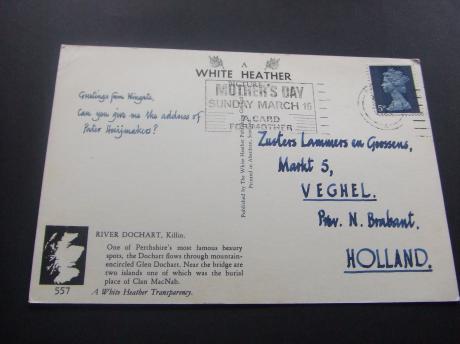 A
WHITE HEATHER
PICTURE
MOTHER'S DAY
SUNDAY MARCH 16
A CARD
FOR MOTHER
5D
Greetings from Wingate,
Can you give me the address of
Pater Heijmakers?
Published by The White Heather
Printed in
Zusters Lammers en Goossens,
Markt 5,
VEGHEL.
Prov. N. Brabant,
HOLLAND.
RIVER DOCHART, Killin.
One of Perthshire's most famous beauty
spots, the Dochart flows through mountain-
encircled Glen Dochart. Near the bridge are
two islands one of which was the burial
place of Clan MacNab.
557
A White Heather Transparency.